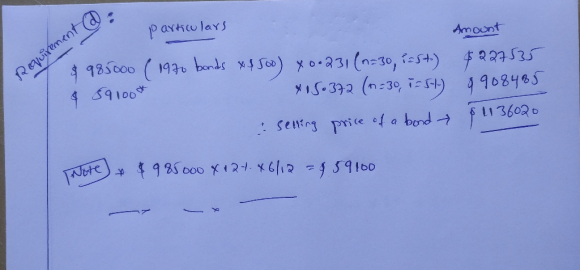 Requirement (d):
Particulars Amount
$ 985000 (1970 bonds x $500) x 0.231 (n=30, i=5%) $ 227535
$ 59100* x 15.372 (n=30, i=5%) $ 908485
∴ selling price of a bond → $ 1136020
Note * $ 985000 x 12% x 6/12 = $ 59100